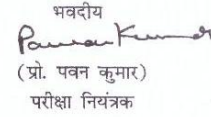 भवदीय
Pawan Kumar
(प्रो. पवन कुमार)
परीक्षा नियंत्रक